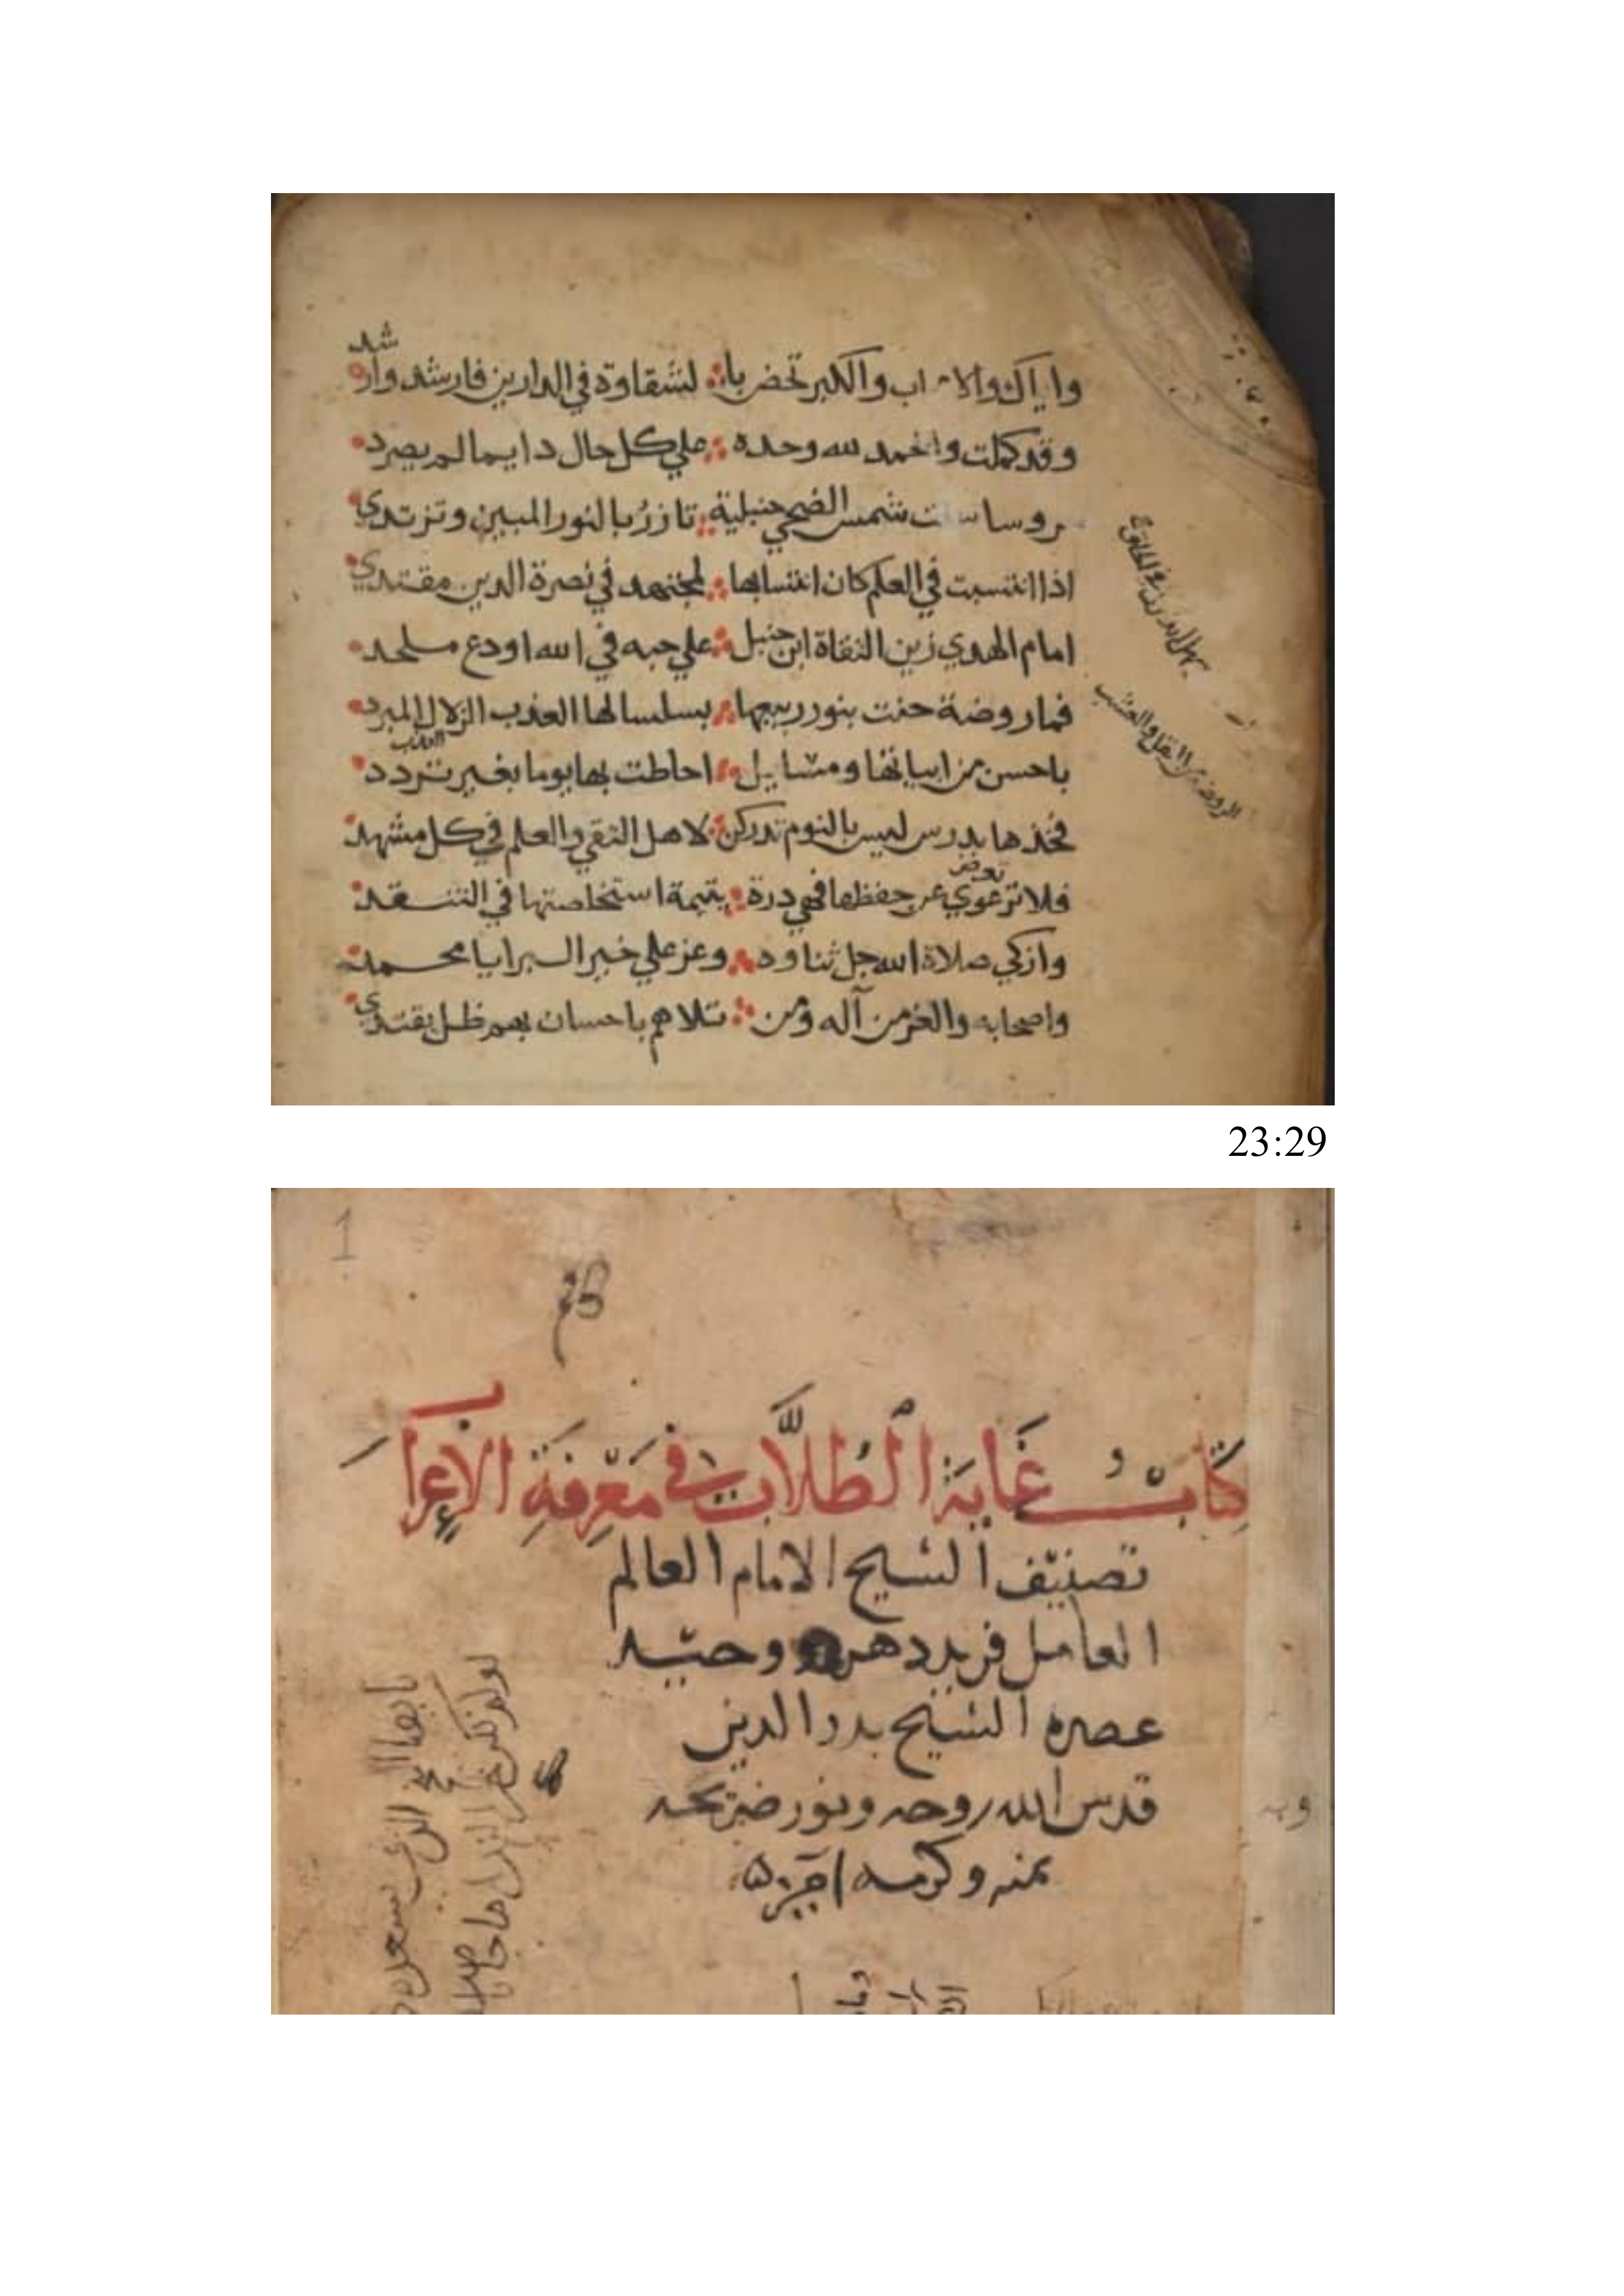 شد
واياك والا اب والكبر تحض با لشقاوة في الدارين فارشد وار
وقد كملت والحمد لله وحده على كل حال دايما لم يصرد
شمس الضحي حنبلية تازر بالنور المبين وترتدي
اذا انتسبت في العلم كان انتسابها لمجتهد في نصرة الدين مقتدي
امام الهدي زين التقاة ابن حنبل علي حبه في الله اودع ملحد
فما روضة حفت بنور ربيعها بسلسالها العذب الزلال المبرد
باحسن من ابياتها ومسايل احاطت بها يوما بغير تردد
فخذها بدرس ليس بالنوم تدركن لاهل التقي والعلم في كل مشهد
فلا ترعوي عن حفظها فهي درة يتيمة استخلصتها في التنقد
وازكي صلاة الله جل ثناوه وعز علي خير البرايا محمد
واصحابه والغر من آله ومن تلاهم باحسان بهم ظل يقتدي
الروضة من البقل والعشب
23:29
1
كتاب غاية الطلاب في معرفة الاعراب
تصنيف الشيخ الامام العالم
العامل فريد دهره وحيد
عصره الشيخ بدر الدين
قدس الله روحه ونور ضريحه
بمنه وكرمه امين